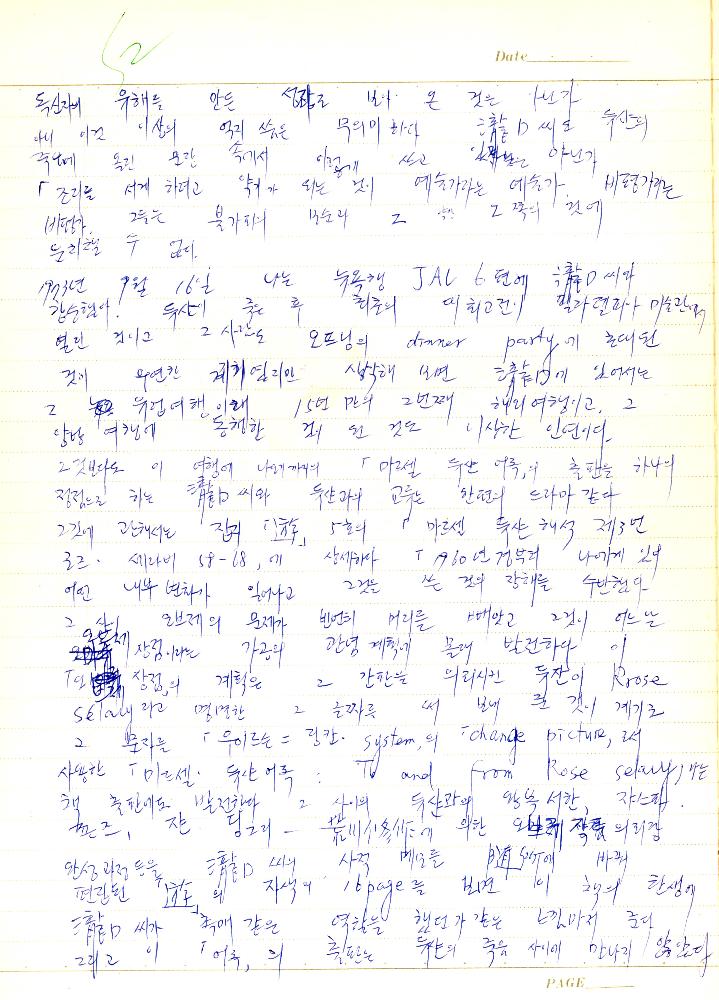 52
Date
독신자의 유해를 만든 성좌로 보아 온 것은 아닌가
아니 이것 이상의 억지 씀은 무의미하다 瀧口씨도 뒤샹의
죽음에 옥긴 요란 속에서 이렇게 쓰고 있지는 아닌가
「조리를 서게 하려고 악귀가 되는 것이 예술가라는 예술가. 비평가라는
비평가. 그들은 불가피의 모순과 2 2 쪽의 것에
분리될 수 없다.
1973년 9월 16일 나는 뉴욕행 JAL 6편에 瀧口씨와
탑승했다. 뒤샹이 죽은 후 최초의 대회고전이 필라델피아 미술관에서
열린 것이고 그 사람도 오프닝의 dinner party에 초대된
것이 우연한 계기였지만 생각해 보면 瀧口에 있어서는
그 유럽여행이래 15년 만의 2번째 해외여행이고, 그
양방 여행에 동행한 것이 된 것도 이상한 인연이다.
그것보다도 이 여행에 나에게까지의 「마르셀 뒤샹 어록」의 출판을 하나의
정점으로 하는 瀧口씨와 뒤샹과의 교류는 한편의 드라마 같다
그것에 관해서는 잡지 「遊」 5호의 「마르셀 뒤샹 해석 제3번
로즈・세라비 58-68」에 상세하다 「1960년경부터 나에게 있어
어떤 내부 변화가 일어나고 그것은 쓰는 것의 장해를 수반했다
그 사이 오브제의 문제가 빈번히 머리를 빼앗고 그것이 어느날
오브제 상점이라는 가공의 관념 계획에 몰래 발전하다 이
「오브제 상점」의 계획은 그 간판을 의뢰시킨 뒤샹이 Rrose
selavy라고 명명한 그 글짜를 써 보내 준 것이 계기로
그 문자를 「우이르슨=링칸・system」의 「change picture」로서
사용한 「마르셀・뒤샹어록 : To and from Rose selavy」라는
책 출판에도 발전한다 그 사이의 뒤샹과의 왕복 서한, 쟈스파.
존즈, 쟌 당그리ー 에 의한 오브제 작품 의뢰장
완성과정 등을 瀧口씨의 사적 메모를 随所에 바꿔
편찬된 「遊」의 자색의 16page를 보면 이 책의 탄생에
瀧口씨가 촉매 같은 역할을 했던가 같은 느낌마저 준다
그리고 이 「어록」의 출판은 뒤샹의 죽음 사이에 만나지 않았다
PAGE